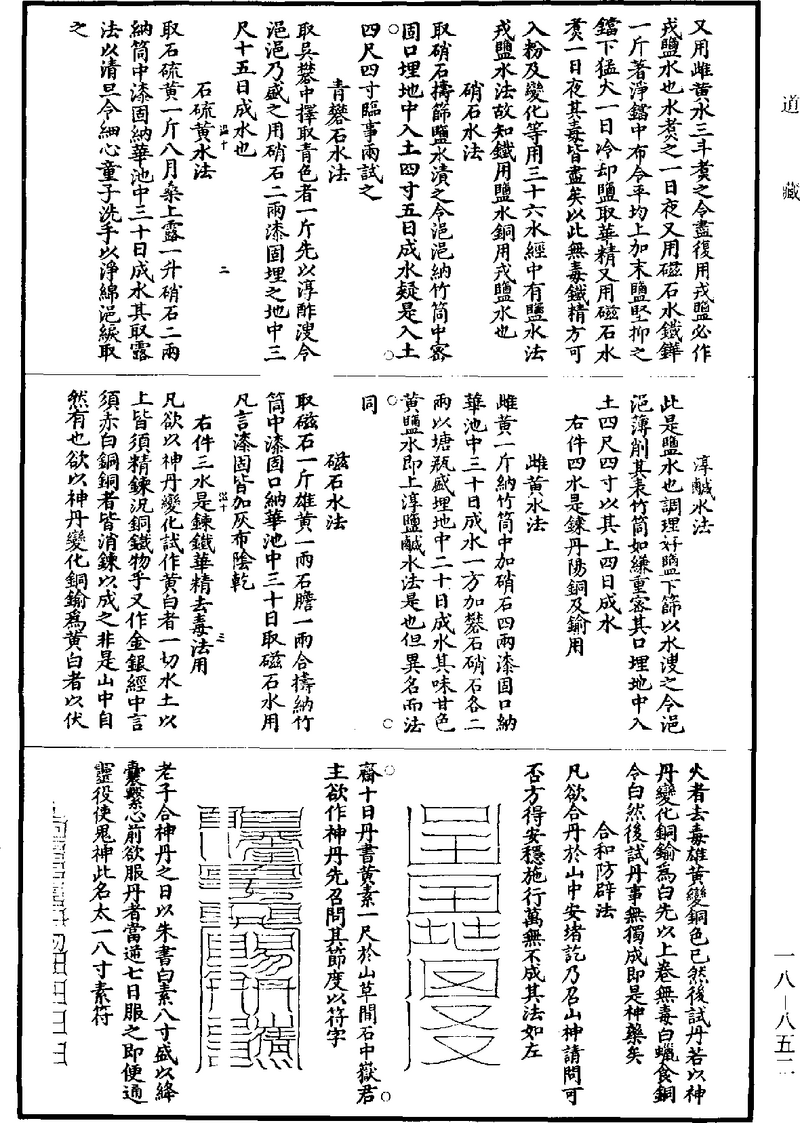 道藏
又用雌黃水三斗煑之令盡復用戎鹽必作
戎鹽水也水煑之一日夜又用磁石水鐵鏵
一斤著淨鐺中布令平均上加末鹽堅抑之
鐺下猛火一日冷却鹽取華精又用磁石水
煑一日夜其毒皆盡矣以此無毒鐵精方可
入粉及變化等用三十六水經中有鹽水法
戎鹽水法故知鐵用鹽水銅用戎鹽水也
硝石水法
取硝石擣篩鹽水漬之令浥浥納竹筒中密
固口埋地中入土四寸五日成水疑是入土
四尺四寸臨事兩試之
青礬石水法
取吳礬中擇取青色者一斤先以淳酢溲令
浥浥乃盛之用硝石二兩漆固埋之地中三
尺十五日成水也
石硫黃水法
取石硫黃一斤八月桑上露一升硝石二兩
納筒中漆固納華池中三十日成水其取露
法以清旦令細心童子洗手以淨綿浥綟取
之
淳鹹水法
此是鹽水也調理好鹽下篩以水溲之令浥
浥薄削其表竹筒如縑重密其口埋地中入
土四尺四寸以其上四日成水
右件四水是鍊丹陽銅及鍮用
雌黃水法
雌黃一斤納竹筒中加硝石四兩漆固口納
華池中三十日成水一方加礬石硝石各二
兩以塘瓶盛埋地中二十日成水其味甘色
黃鹽水即上淳鹽鹹水法是也但異名而法
同
磁石水法
取磁石一斤雄黃一兩石膽一兩合擣納竹
筒中漆固口納華池中三十日取磁石水用
凡言漆固皆加灰布陰乾
右件三水是鍊鐵華精去毒法用
凡欲以神丹變化試作黃白者一切水土以
上皆須精鍊況銅鐵物乎又作金銀經中言
須赤白銅銅者皆消鍊以成之非是山中自
然有也欲以神丹變化銅鍮為黃白者以伏
火者去毒雄黃變銅色已然後試丹若以神
丹變化銅鍮為白先以上卷無毒白蠟食銅
令白然後試丹事無獨成即是神藥矣
合和防辟法
凡欲合丹於山中安堵訖乃召山神請問可
否方得安穩施行萬無不成其法如左
齋十日丹書黃素一尺於山草間石中嶽君
主欲作神丹先召問其節度以符字
老子合神丹之日以朱書白素八寸盛以絳
囊繫心前欲服丹者當逆七日服之即便通
靈役使鬼神此名太一八寸素符
一八—八五二